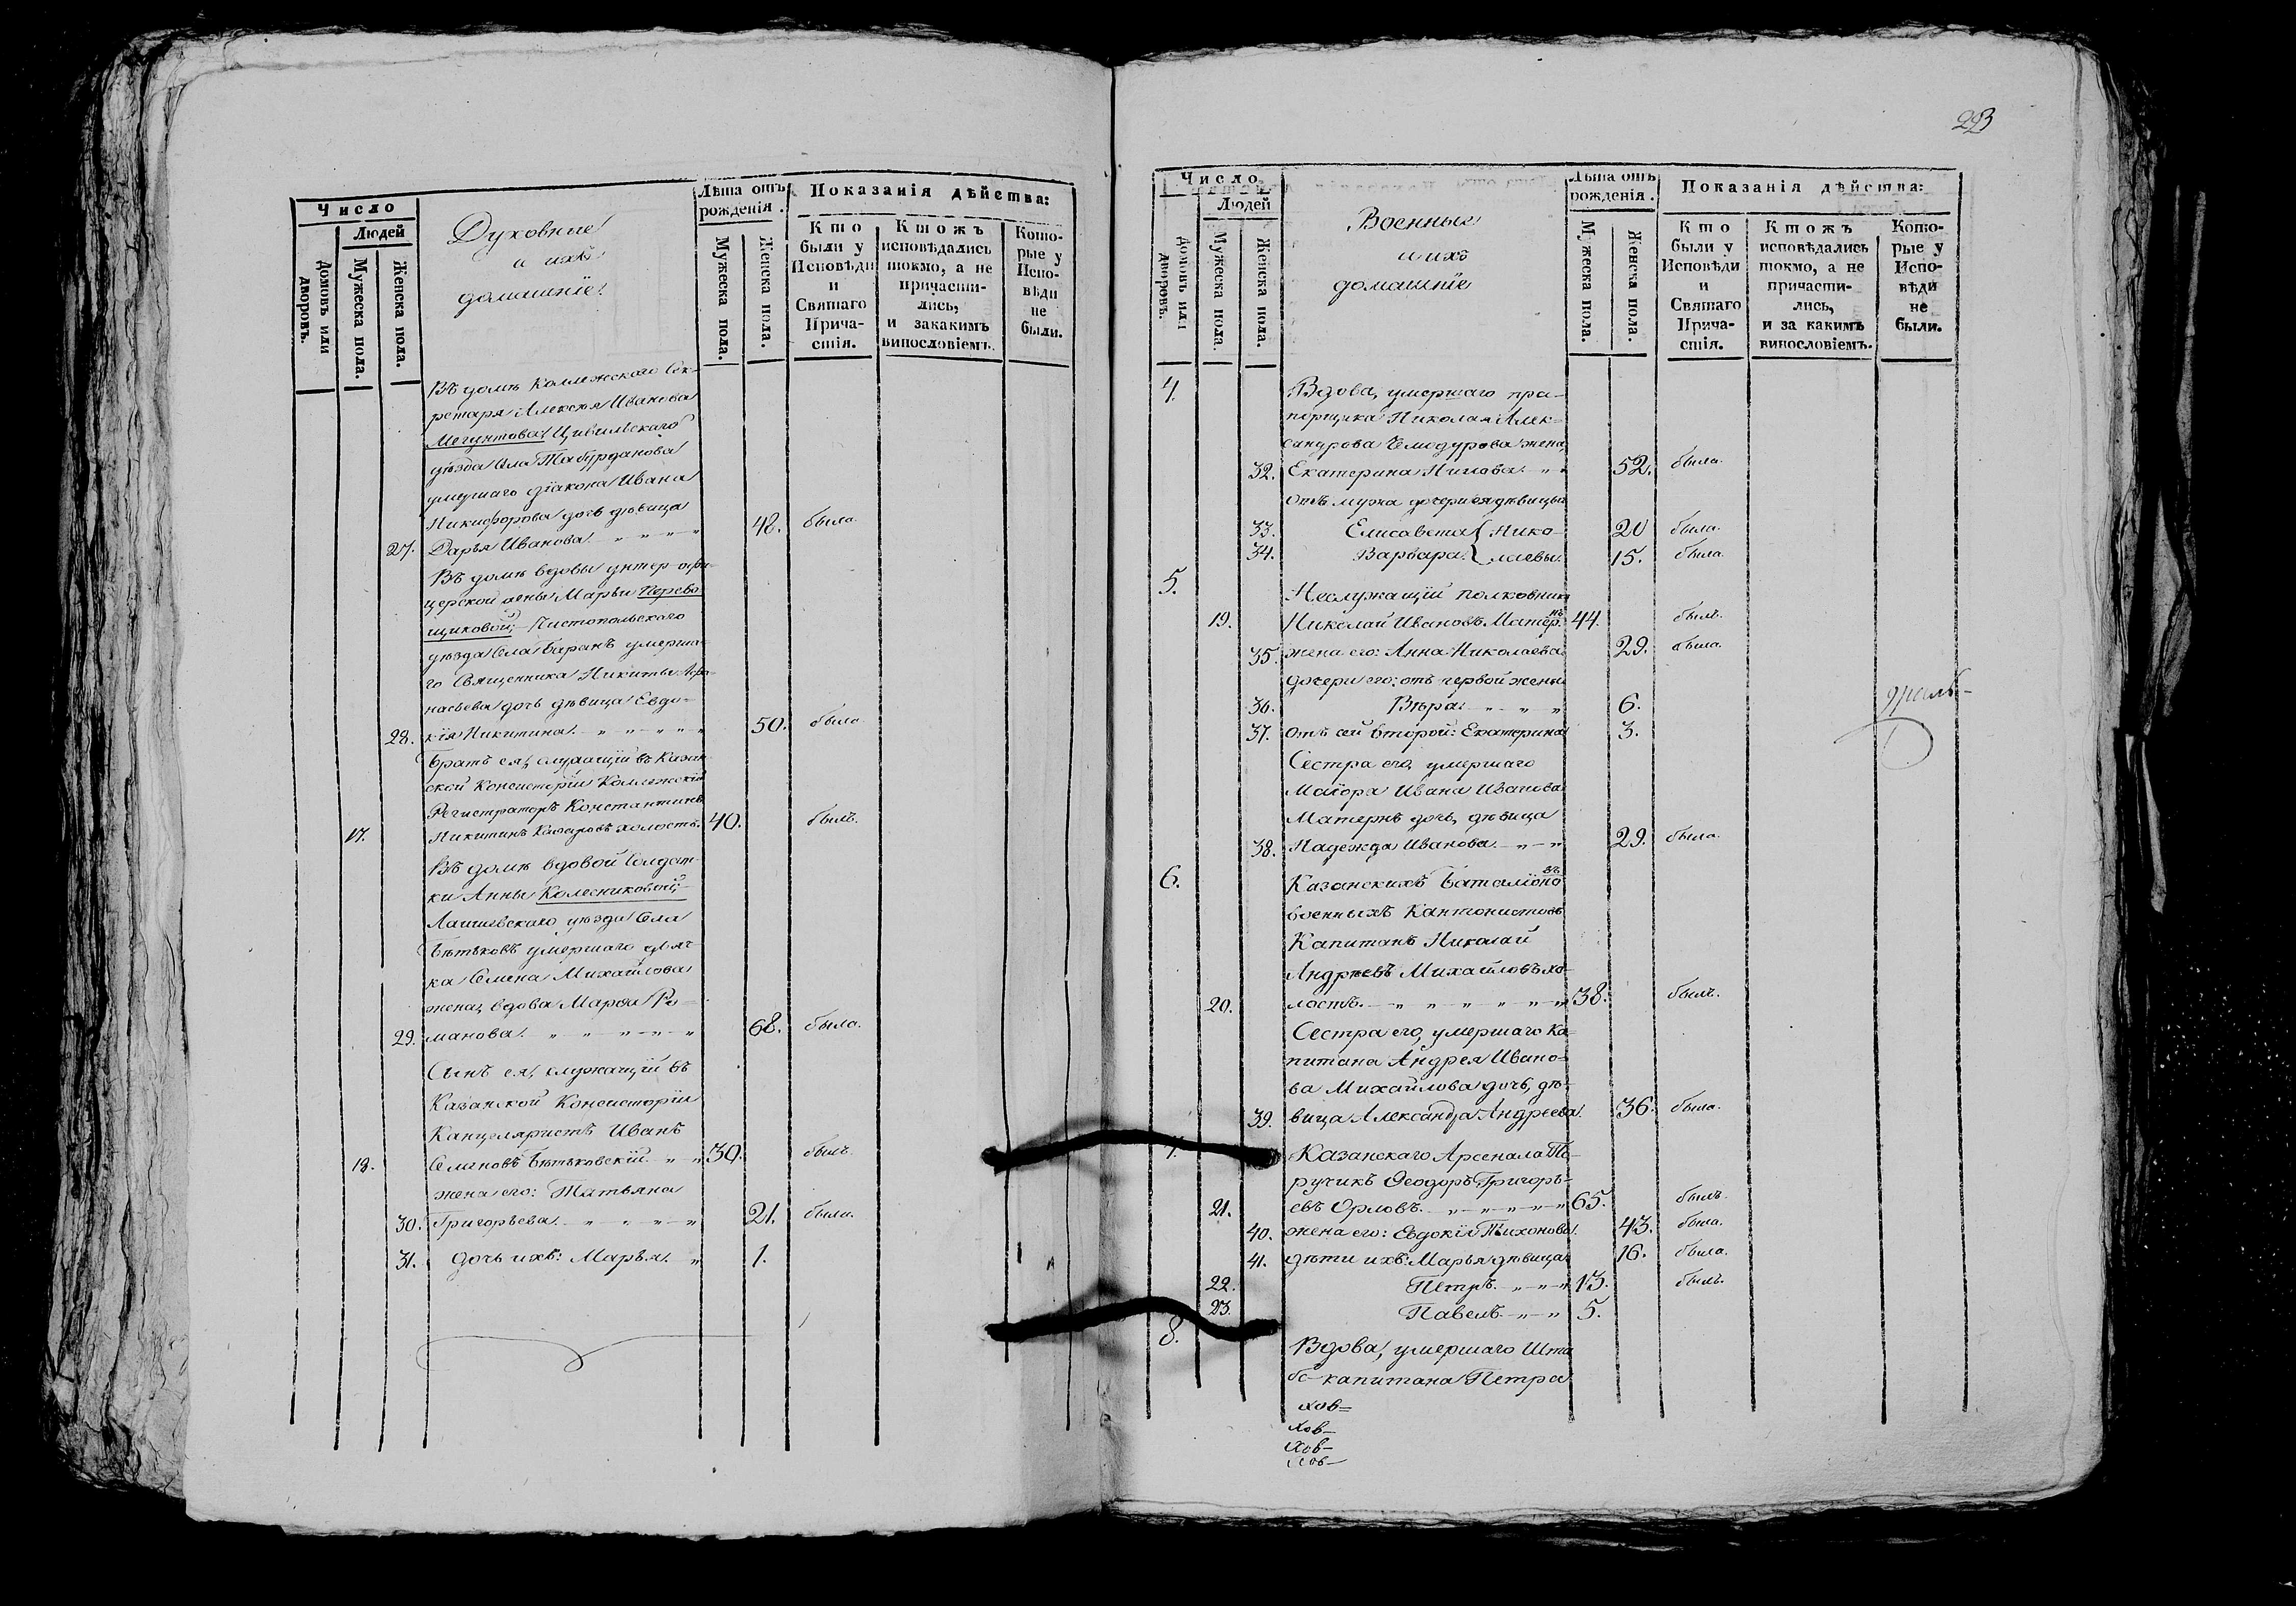 Число
Людей
домовъ или дворовъ.
Мужеска пола.
Женска пола.
Духовные
и ихъ
домашніе.
Лѣта отъ рожденія.
Мужеска пола.
Женска пола.
Показанія дѣйства:
Кто были у Исповѣди и Святаго Прича-стія.
Ктожъ исповѣдались токмо, а не причасти-лись, и закакимъ винословіемъ.
Кото-рые у Испо-вѣди не были.
Въ домѣ Коллежскаго Сек-
ретаря Алексѣя Иванова
Цивильскаго
уѣзда Села Табурданова
умершаго діакона Ивана
Никифорова дочь дѣвица
27. Дарья Иванова 48. была.
Въ домѣ вдовы унтер-офи-
церской жены Марьи Перево-
щиковой; Чистопольскаго
уѣзда Села Баранъ умерша-
го Священника Никиты Афа-
насьева дочь дѣвица Евдо-
28. кія Никитина. 50. была
Братъ ея, служащій въ Казан-
ской Консисторіи Коллежскій
Регистраторъ Константинъ
17. Никитинъ холостъ. 40. былъ.
Въ домѣ вдовой Солдат-
ки Анны Колесниковой;
Лаишевскаго уѣзда Села
Бѣтьковъ умершаго дьяч-
ка Семена Михайлова
жена, вдова Марфа Ро-
29. манова. 68. была.
Сынъ ея, служащій въ
Казанской Консисторіи
Канцеляристъ Иванъ
18. Семеновъ Бѣтьковскій. 30. былъ.
жена его: Татьяна
30. Григорьева. 21. была.
31. дочь ихъ: Марья. 1.
23
Число
Людей
домовъ или дворовъ.
Мужеска пола.
Женска пола.
Военные
и ихъ
домашніе
Лѣта отъ рожденія.
Мужеска пола.
Женска пола.
Показанія дѣйства:
Кто были у Исповѣди и Святаго Прича-стія.
Ктожъ исповѣдались токмо, а не причасти-лись, и за какимъ винословіемъ.
Кото-рые у Испо-вѣди не были.
4. Вдова, умершаго пра-
порщика Николая Алек-
сандрова Чемодурова жена,
32. Екатерина 52. была.
отъ мужа дочери ея дѣвицы
33. Елисавета Нико- 20 была.
34. Варвара. лаевы. 15. была.
5. Неслужащій полковник
19. Николай Ивановъ Матернъ. 44. былъ.
35. жена его: Анна Николаева 29. была.
дочери его: отъ первой жены
36. Вѣра 6.
37. отъ сей второй: Екатерина 3.
Сестра его, умершаго
Маіора Ивана Иванова
Матернъ дочь, дѣвица
38. Надежда Иванова. 29. была.
6. Казанскихъ Баталіоновъ
военныхъ Кантонистовъ
Капитанъ Николай
Андреевъ Михайловъ хо-
20. лостъ. 38. былъ.
Сестра его, умершаго Ка-
питана Андрея Ивано-
ва Михайлова дочь, дѣ-
39. вица Александра Андреева. 36. была.
7. Казанскаго Арсенала По-
ручикъ Ѳеодоръ Григорь-
21. евъ Орловъ. 65. былъ.
40. жена его: Евдокія Тихонова. 43. была.
41. дѣти ихъ: Марья дѣвица 16. была.
22. Петръ. 13. былъ.
23. Павелъ. 5.
8. Вдова, умершаго Шта
бс-капитана Петра
хов-
хов-
хов-
хов-